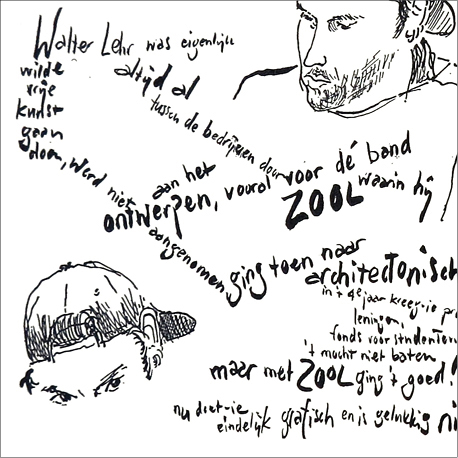 Walter Lehr was eigenlijk
altijd al
tussch de bedrijven door
aan het
ontwerpen, vooral voor dé band
ZOOL waarin hij
wilde
vrije
kunst
gaan
doen, werd niet
aangenomen
ging toen naar
architectonisch
in 't 4e jaar kreeg-ie pr
leningen,
fonds voor studenten
't mocht niet baten
maar met ZOOL ging 't goed!
nu doet-ie
eindelijk grafisch en is gelukkig ni